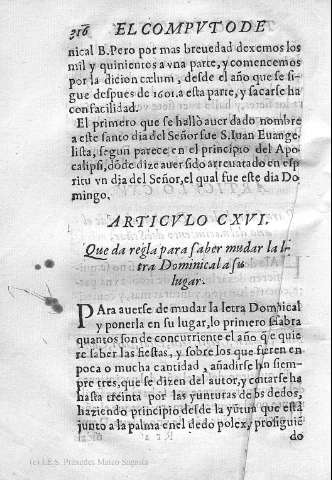 316 EL COMPVTO DE
nical B. Pero por mas breuedad dexemos los
mil y quinientos a vna parte, y comencemos
por la dicion cælum, desde el año que se si-
gue despues de 1601. a esta parte, y sacarse ha
con facilidad.
El primero que se hallò auer dado nombre
a este santo dia del Señor fue S. Iuan Euange-
lista, segun parece en el principio del Apo-
calipsi, dōde dize auer sido arreuatado en espi-
ritu vn dia del Señor, el qual fue este dia Do-
mingo.
ARTICVLO CXVI.
Que da regla para saber mudar la le-
tra Dominical a su
lugar.
PAra auerse de mudar la letra Dominical
y ponerla en su lugar, lo primero se sabra
quantos son de concurriente el año q̃ quie
re saber las fiestas, y sobre los que fueren en
poca o mucha cantidad, añadirse han siem-
pre tres, que se dizen del autor, y contarse ha
hasta treinta por las yunturas de los dedos,
haziendo principio desde la yũtura que està
junto a la palma en el dedo polex, prosiguiē
do
(c) I.E.S. Práxedes Mateo Sagasta